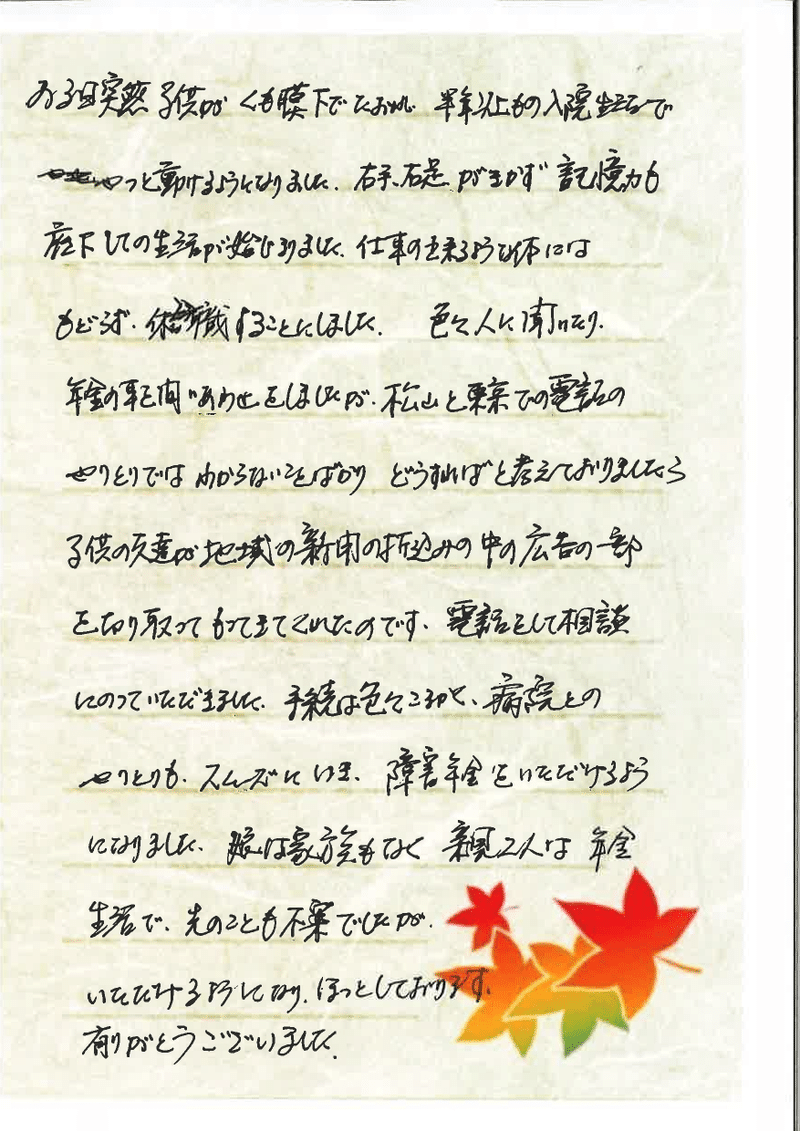 ある日突然子供がくも膜下でたおれ 半年以上もの入院生活で
やっと動けるようになりました。右手、右足がきかず 記憶力も
低下しての生活が始まりました。仕事の出来るような体には
もどらず、休職することにしました。 色々人に聞いたり、
年金の事を問いあわせをしましたが、松山と東京での電話の
やりとりではわからないことばかり どうすればと考えておりましたら
子供の友達が地域の新聞の折込みの中の広告の一部
を切り取ってもってきてくれたのです。電話をして相談
にのっていただきました。手続は色々こまかく、病院との
やりとりも、スムーズにいき、障害年金をいただけるよう
になりました。娘は家族もなく 親2人は 年金
生活で、先のことも不安でしたが、
いただけるようになり、ほっとしております。
有りがとうございました。